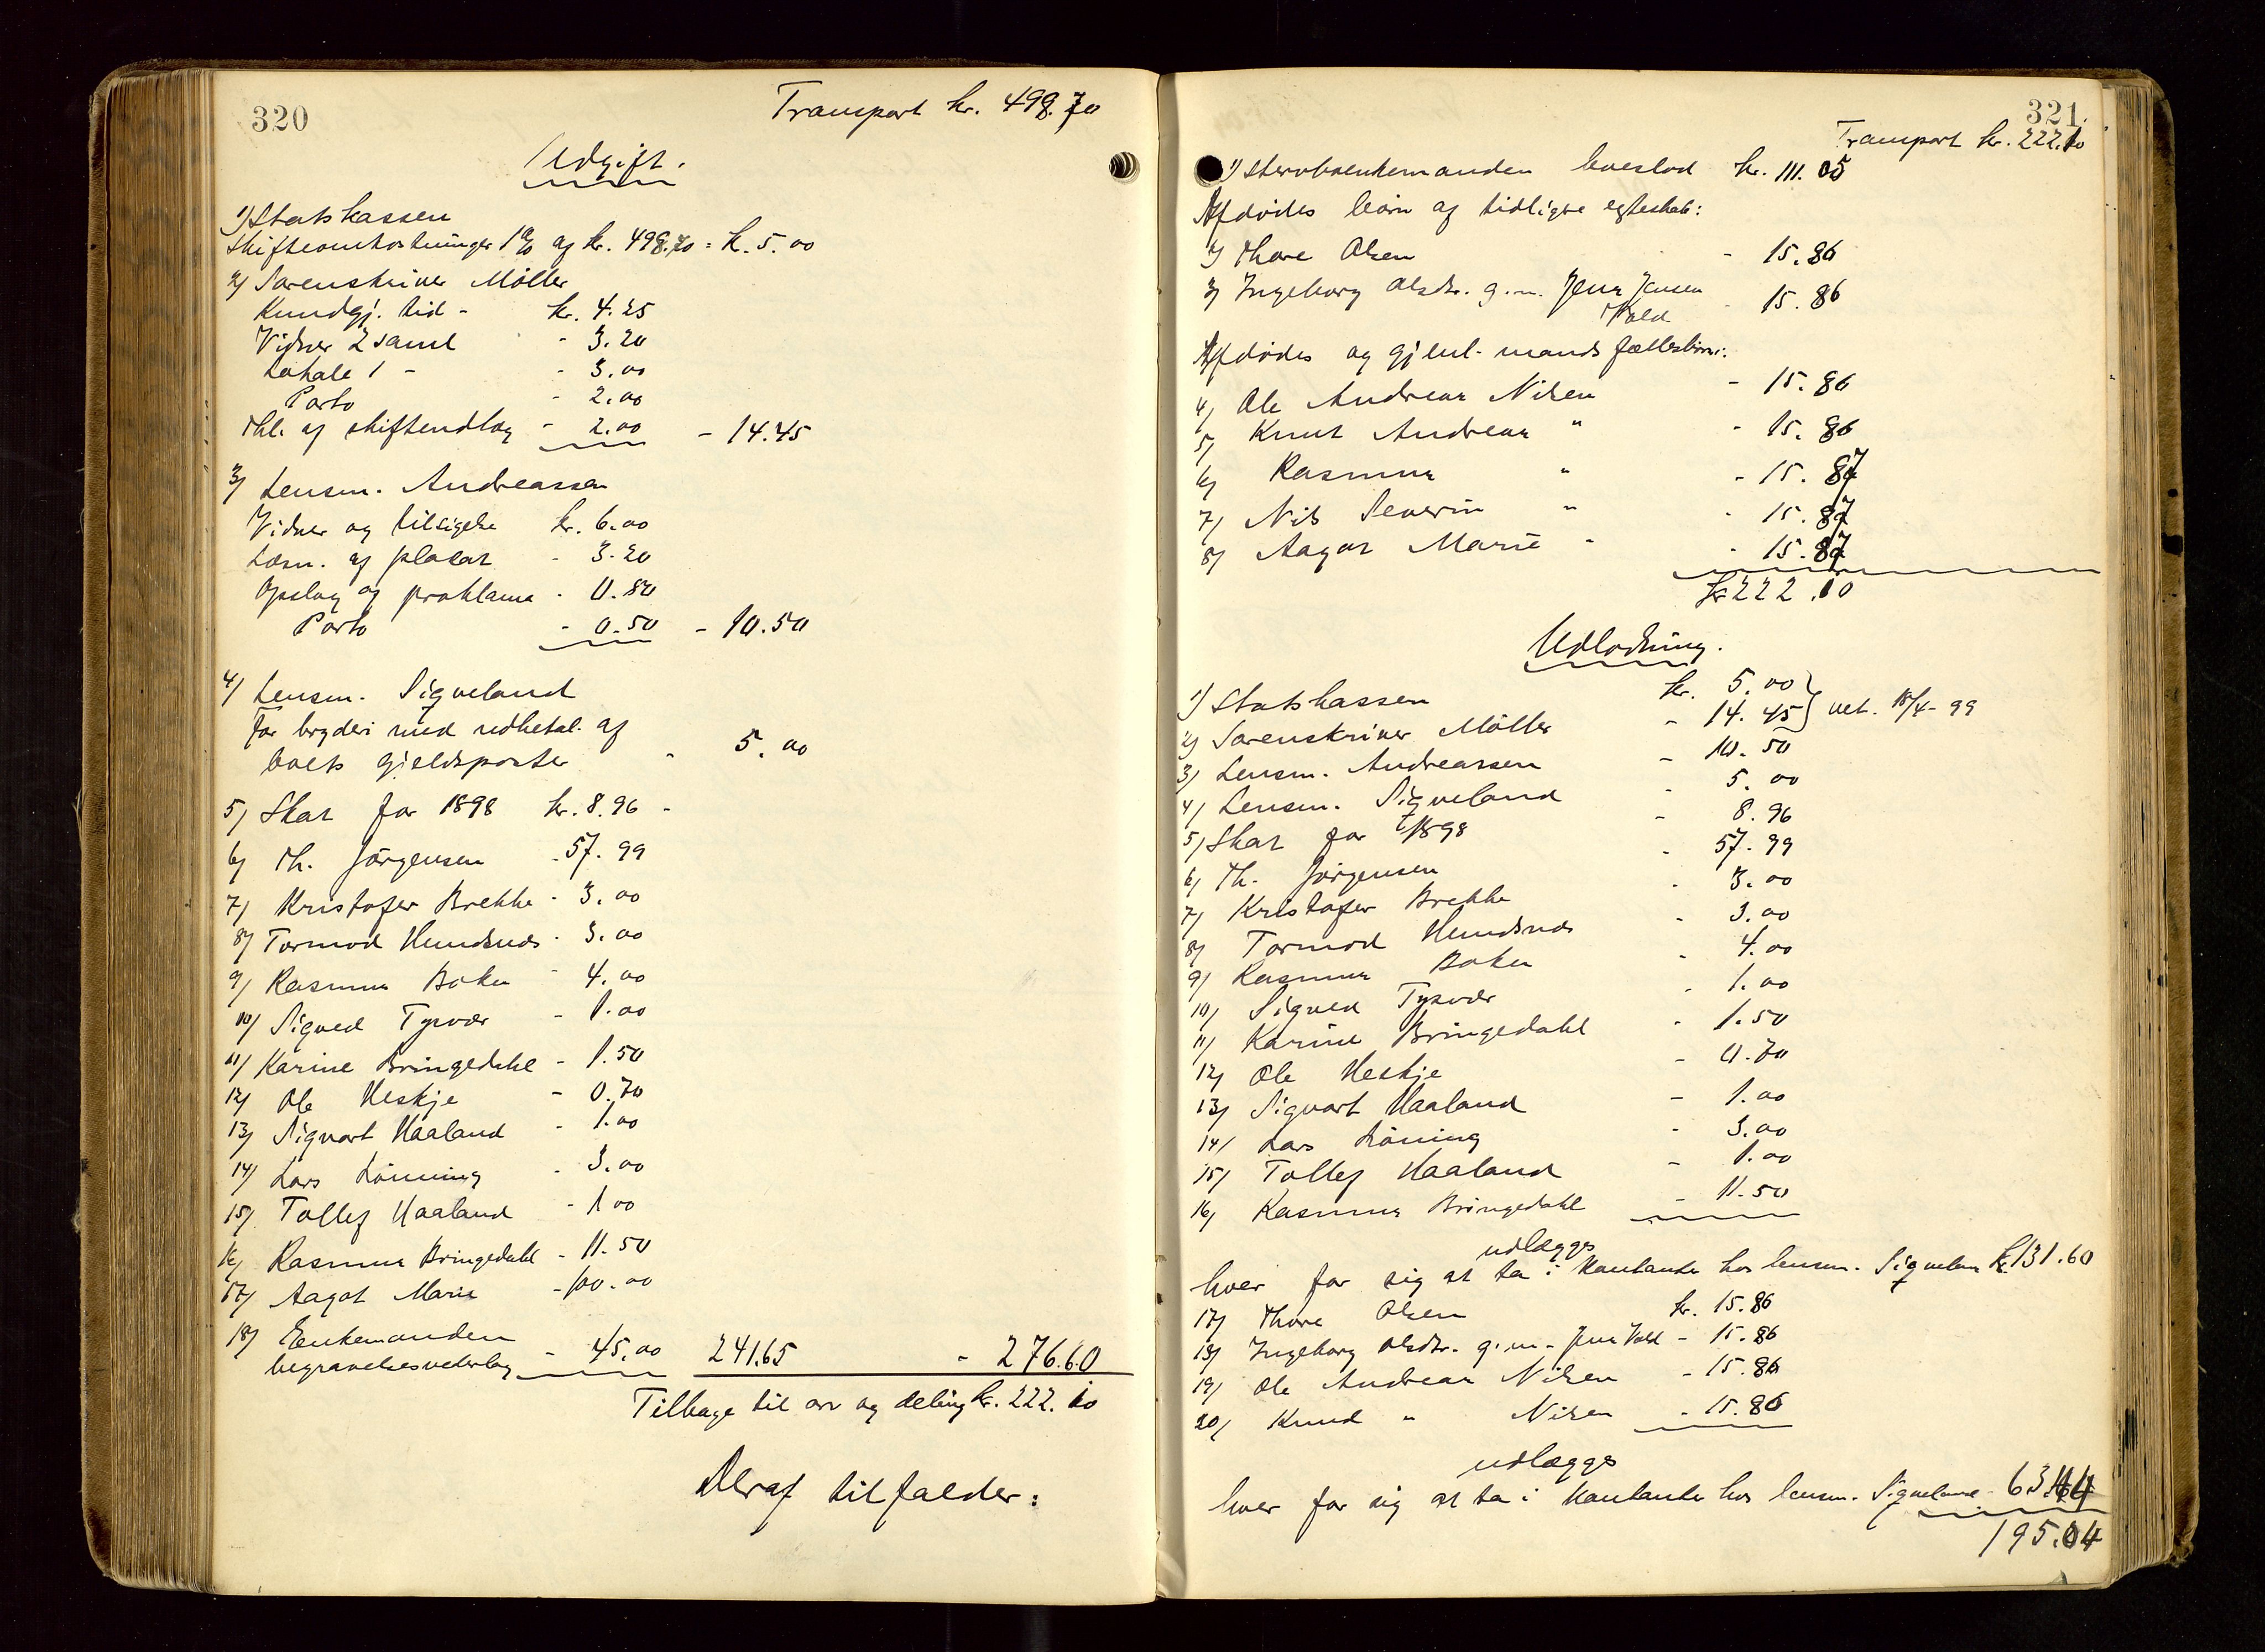 320
Transport kr. 498.70
Udgift.
1) Statskassen
Skifteomkostninger 1% af kr. 498.70 = k. 5.00
2) Sorenskriver Möller
Kundgj. tid - kr. 4.25
Vidner 2 saml - 3.20
Lokale 1 - - 3.00
Porto - 2.00
af skifteudlæg - 2.00 - 14.45
3) Lensm. Andreassen
Vidner og tilsigelse kr. 6.00
Læsn. af placat - 3.20
Opslag af proklama - 0.80
Porto - 0.50 - 10.50
4) Lensm. Sigveland
For bryderi med udbetal. af
boets gjeldsposter - 5.00
5) Skat for 1898 kr. 8.96 -
6) Th. Jörgensen - 57.99
7) Kristofer Brekke - 3.00
8) Tormod Hundsnes - 3.00
9) Rasmus Boken - 4.00
10) Sigved Tysvær - 1.00
11) Karine Bringedahl - 1.50
12) Ole Heskje - 0.70
13) Sigvart Haaland - 1.00
14) Lars Lönning - 3.00
15) Tollef Haaland - 1.00
16) Rasmus Bringedahl - 11.50
17) Aagot Marie - 100.00
18) Enkemanden
begravelsesvederlag - 45.00 241.65 - 276.60
Tilbage til arv og deling kr. 222.10
Deraf tilfalder:
321.
Transport kr. 222.10
1) Stervboenkemanden boeslod kr. 111.05
Afdødes börn af tidligere egteskab:
2) Thore Olsen - 15.86
3) Ingeborg Olsdtr. g.m. Jens Jensen
Vold - 15.86
Afdødes og gjenl. mands fællesbörn:
4) Ole Andreas Nilsen - 15.86
5) Knut Andreas " - 15.86
6) Rasmus " - 15.87
7) Nils Severin " - 15.87
8) Aagot Marie " - 15.87
kr 222.10
Udlodning.
1) Statskassen kr. 5.00
2) Sorenskriver Möller - 14.45 } bet. 18/4-99
3) Lensm. Andreassen - 10.50
4) Lensm. Sigveland - 5.00
5) Skat for 1898 - 8.96
6) Th. Jörgensen - 57.99
7) Kristofer Brekke - 3.00
8) Tormod Hundsnes - 3.00
9) Rasmus Boken - 4.00
10) Sigved Tysvær - 1.00
11) Karine Bringedahl - 1.50
12) Ole Heskje - 0.70
13) Sigvart Haaland - 1.00
14) Lars Löning - 3.00
15) Tollef Haaland - 1.00
16) Rasmus Bringedahl - 11.50
udlægges
hver for sig at ta i kontante hos lensm. Sigveland kr. 131.60
17) Thore Olsen kr. 15.86
18) Ingeborg Olsdtr. g.m. Jens Vold - 15.86
19) Ole Andreas Nilsen - 15.86
20) Knud " Nilsen - 15.86
udlægges
hver for sig at ta i kontante hos lensm. Sigveland - 63.44
195.04